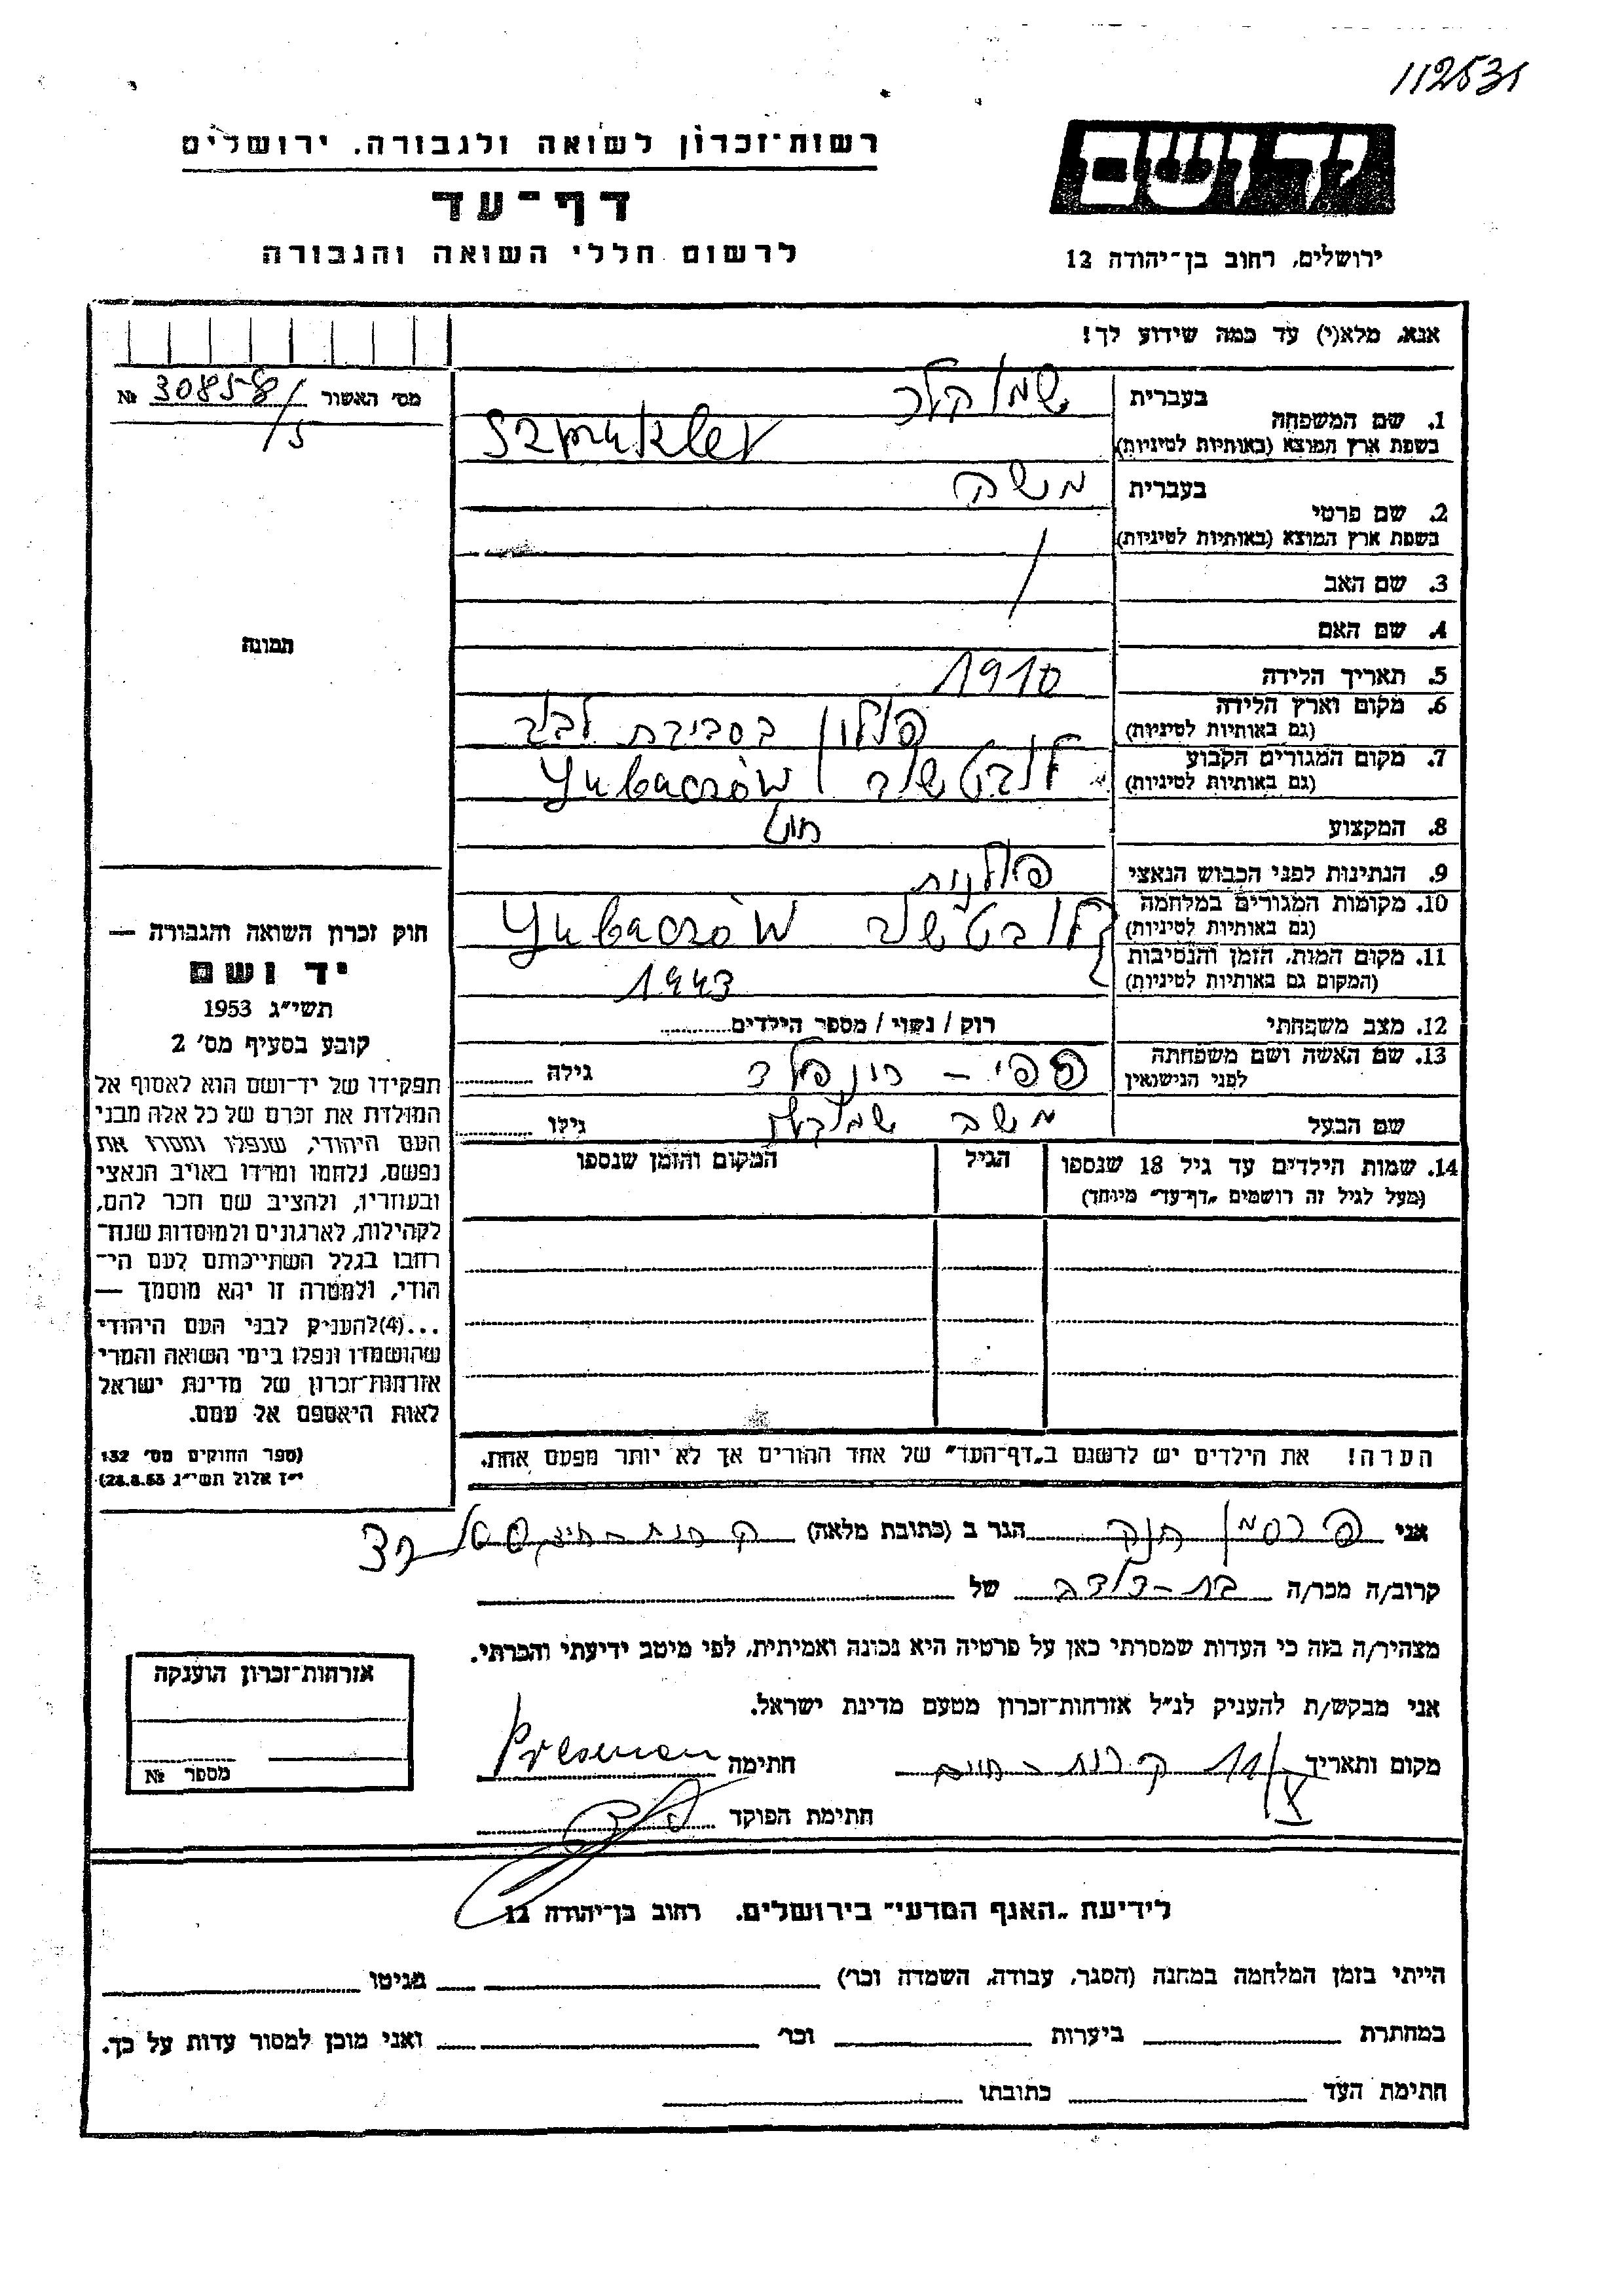 112535
רשות־זכרון לשואה ולגבורה, ירושלים
דף־עד
לרשום חללי השואה והגבורה
ידושם
ירושלים, רחוב בן־יהודה 12
אנא, מלא(י) עד כמה שידוע לך!
מס׳ האשור 30858 №
/5
1. שם המשפחה
בעברית
בשפת ארץ המוצא (באותיות לטיניות) Szmukler
2. שם פרטי
בעברית משה
בשפת ארץ המוצא (באותיות לטיניות)
3. שם האב
4. שם האם
5. תאריך הלידה 1910
6. מקום וארץ הלידה פולין בסביבת
(גם באותיות לטיניות)
7. מקום המגורים הקבוע
(גם באותיות לטיניות)
8. המקצוע
9. הנתינות לפני הכבוש הנאצי פולנית
10. מקומות המגורים במלחמה
(גם באותיות לטיניות)
11. מקום המות, הזמן והנסיבות 1943
(המקום גם באותיות לטיניות)
12. מצב משפחתי רוק / נשוי / מספר הילדים
13. שם האשה ושם משפחתה גילה
לפני הנישואין
שם הבעל משה גילו
14. שמות הילדים עד גיל 18 שנספו הגיל המקום והזמן שנספו
(מעל לגיל זה רושמים „דף־עד״ מיוחד)
הערה! את הילדים יש לרשום ב„דף־העד״ של אחד ההורים אך לא יותר מפעם אחת.
תמונה
חוק זכרון השואה והגבורה —
יד ושם
תשי״ג 1953
קובע בסעיף מס׳ 2
תפקידו של יד־ושם הוא לאסוף אל
המולדת את זכרם של כל אלה מבני
העם היהודי, שנפלו ומסרו את
נפשם, נלחמו ומרדו באויב הנאצי
ובעוזריו, ולהציב שם וזכר להם,
לקהילות, לארגונים ולמוסדות שנח־
רבו בגלל השתייכותם לעם הי־
הודי, ולמטרה זו יהא מוסמך —
...(4) להעניק לבני העם היהודי
שהושמדו ונפלו בימי השואה והמרי
אזרחות־זכרון של מדינת ישראל
לאות היאספם אל עמם.
(ספר החוקים מס׳ 132
י״ז אלול תשי״ג 28.8.53)
אני פרסמן הגר ב (כתובת מלאה)
קרוב/ה מכר/ה בת-דודה של
מצהיר/ה בזה כי העדות שמסרתי כאן על פרטיה היא נכונה ואמיתית, לפי מיטב ידיעתי והכרתי.
אני מבקש/ת להעניק לנ״ל אזרחות־זכרון מטעם מדינת ישראל.
מקום ותאריך 11/X קרית-חיים חתימה Presman
חתימת הפוקד
אזרחות־זכרון הוענקה
מספר №
לידיעת „האגף המדעי״ בירושלים. רחוב בן־יהודה 12
הייתי בזמן המלחמה במחנה (הסגר, עבודה, השמדה וכו׳) בגיטו
במחתרת ביערות וכו׳ ואני מוכן למסור עדות על כך.
חתימת העד כתובתו